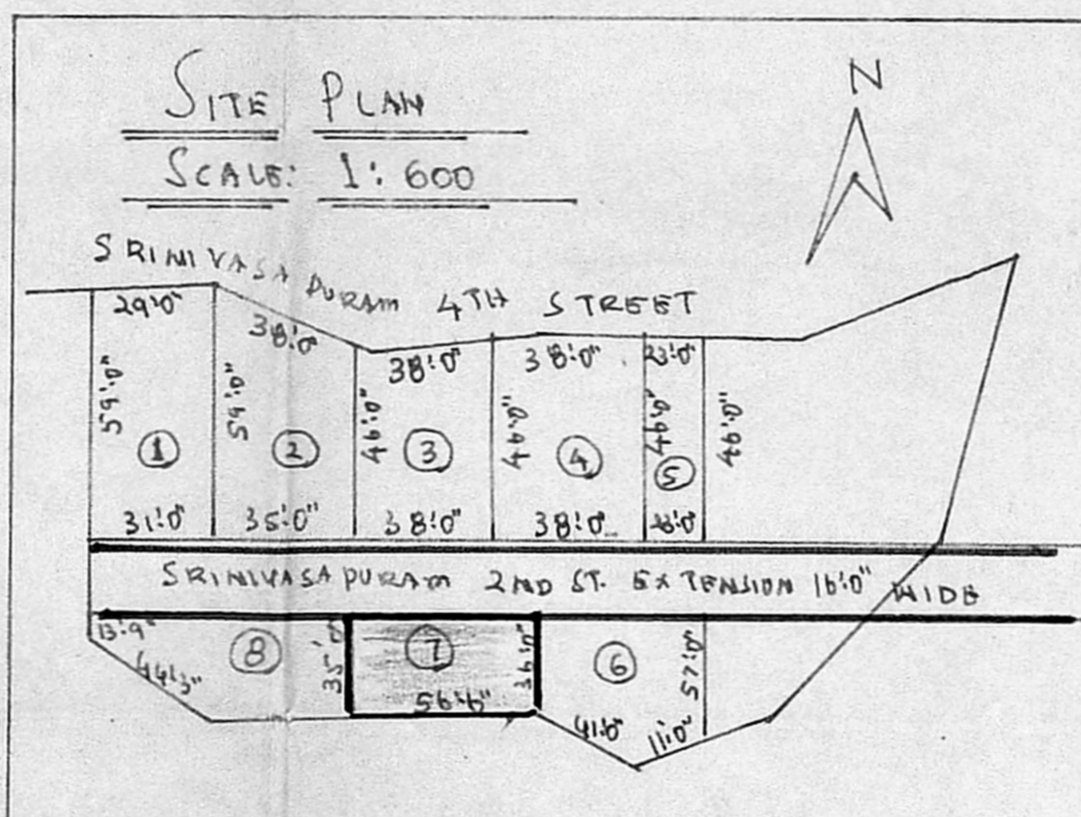 SITE PLAN
SCALE: 1:600
N
SRINIVASA PURAM 4TH STREET
29'0"
38'0"
38'0"
38'0"
23'0"
59'0"
59'0"
46'0"
46'0"
46'0"
46'0"
1
2
3
4
5
31'0"
35'0"
38'0"
38'0"
23'0"
SRINIVASA PURAM 2ND ST. EXTENSION 16'0" WIDE
13'9"
44'3"
8
35'0"
7
56'6"
36'0"
6
57'0"
41'0"
11'0"